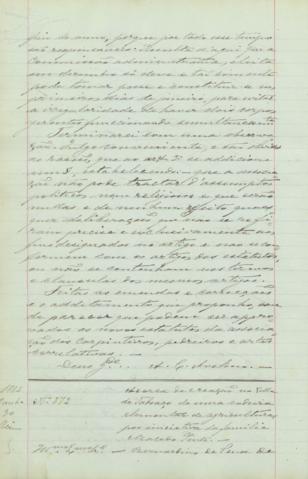 fim do anno, porque por todo esse tempo
são responsaveis. Resulta d'aqui que a
Commissão administrativa, eleita
em dezembro só deve e tal somente
pode tomar posse e constituir-se nos
primeiros dias de janeiro, por evitar
a irregularidade de haver dois corpos
gerentes funccionando simultaneamente
Terminarei com uma observa-
ção. Julgo conveniente, e são obvias
as razões, que ao artº 3º se addicione
um §, estabelecendo - que a associa-
ção não pode tractar d'assumptos
politicos, nem religiosos e que serão
nullas e de nenhum effeito quaes-
quer deliberações que não se refi-
ram precisa e exclusivamente aos
fins designados no artigo e não se con-
formem com os artigos dos estatutos,
ou não se contenham nos termos
e clausulas dos mesmos artigos.
Feitas as emendas e correcções
e o additamento que proponho, sou
de parecer que podem ser appro-
vados os novos estatutos da associa-
ção dos carpinteiros, pedreiros e artes
correlativas. —
Deus gde
Nº 372
Acerca da creação na Villa
de uma cadeira
elementar de agricultura
por iniciativa da familia
Macedo Pinto. —
Bernardino de